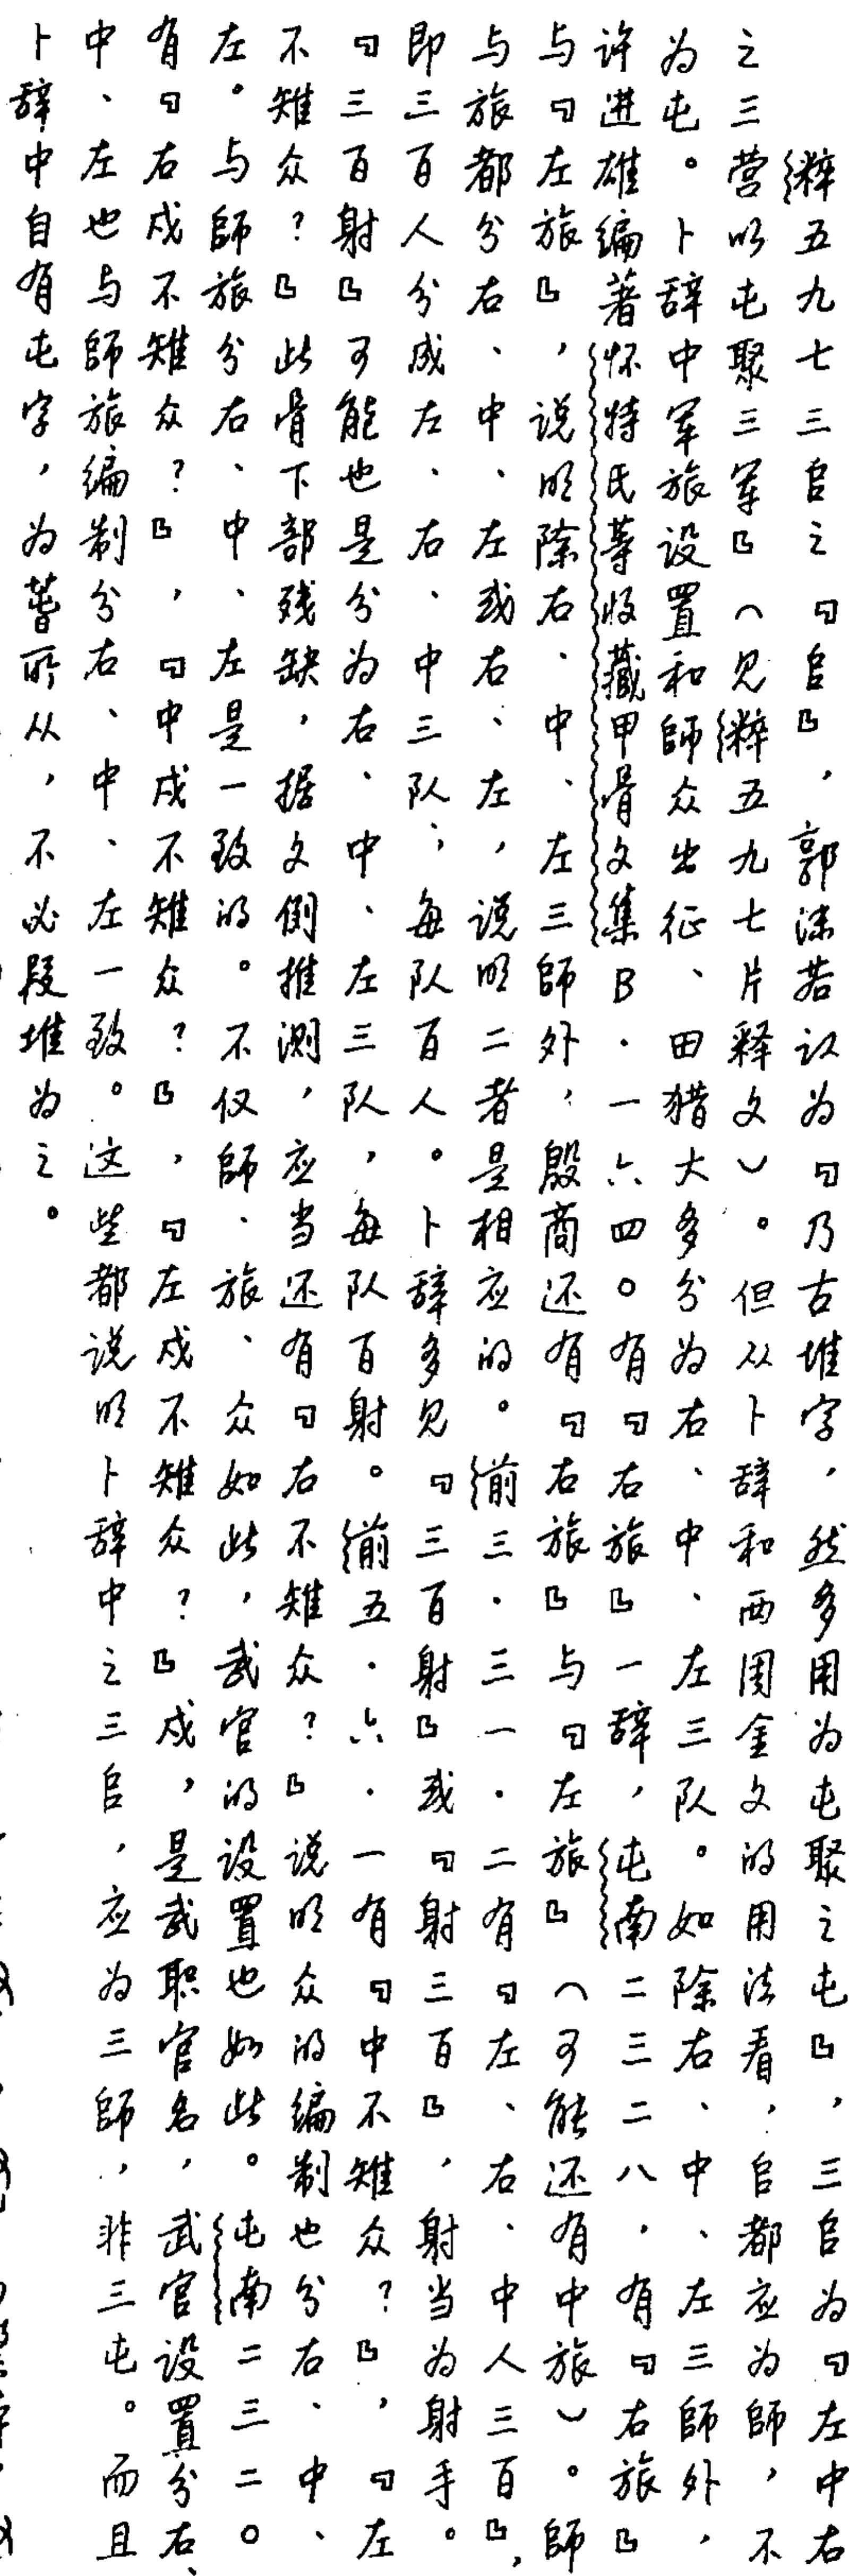 粹五九七三𠂤之『𠂤』，郭沫若认为『乃古堆字，然多用为屯聚之屯』，三𠂤为『左中右
之三营以屯聚三军』（见粹五九七片释文）。但从卜辞和两周金文的用法看，𠂤都应为師，不
为屯。卜辞中军旅设置和師众出征、田猎大多分为右、中、左三队。如除右、中、左三師外，
许进雄编著怀特氏等收藏甲骨文集B·一六四〇有『右旅』一辞，屯南二三二八，有『右旅』
与『左旅』，说明除右、中、左三師外，殷商还有『右旅』与『左旅』（可能还有中旅）。師
与旅都分右、中、左或右、左，说明二者是相应的。前三·三一·二有『左、右、中人三百』，
即三百人分成左、右、中三队，每队百人。卜辞多见『三百射』或『射三百』，射当为射手。
『三百射』可能也是分为右、中、左三队，每队百射。前五·六·一有『中不雉众？』，『左
不雉众？』此骨下部残缺，据文例推测，应当还有『右不雉众？』说明众的编制也分右、中、
左。与師旅分右、中、左是一致的。不仅師、旅、众如此，武官的设置也如此。屯南二三二〇
有『右戍不雉众？』，『中戍不雉众？』，『左戍不雉众？』戍，是武职官名，武官设置分右、
中、左也与師旅编制分右、中、左一致。这些都说明卜辞中之三𠂤，应为三師，非三屯。而且
卜辞中自有屯字，为萅所从，不必叚堆为之。